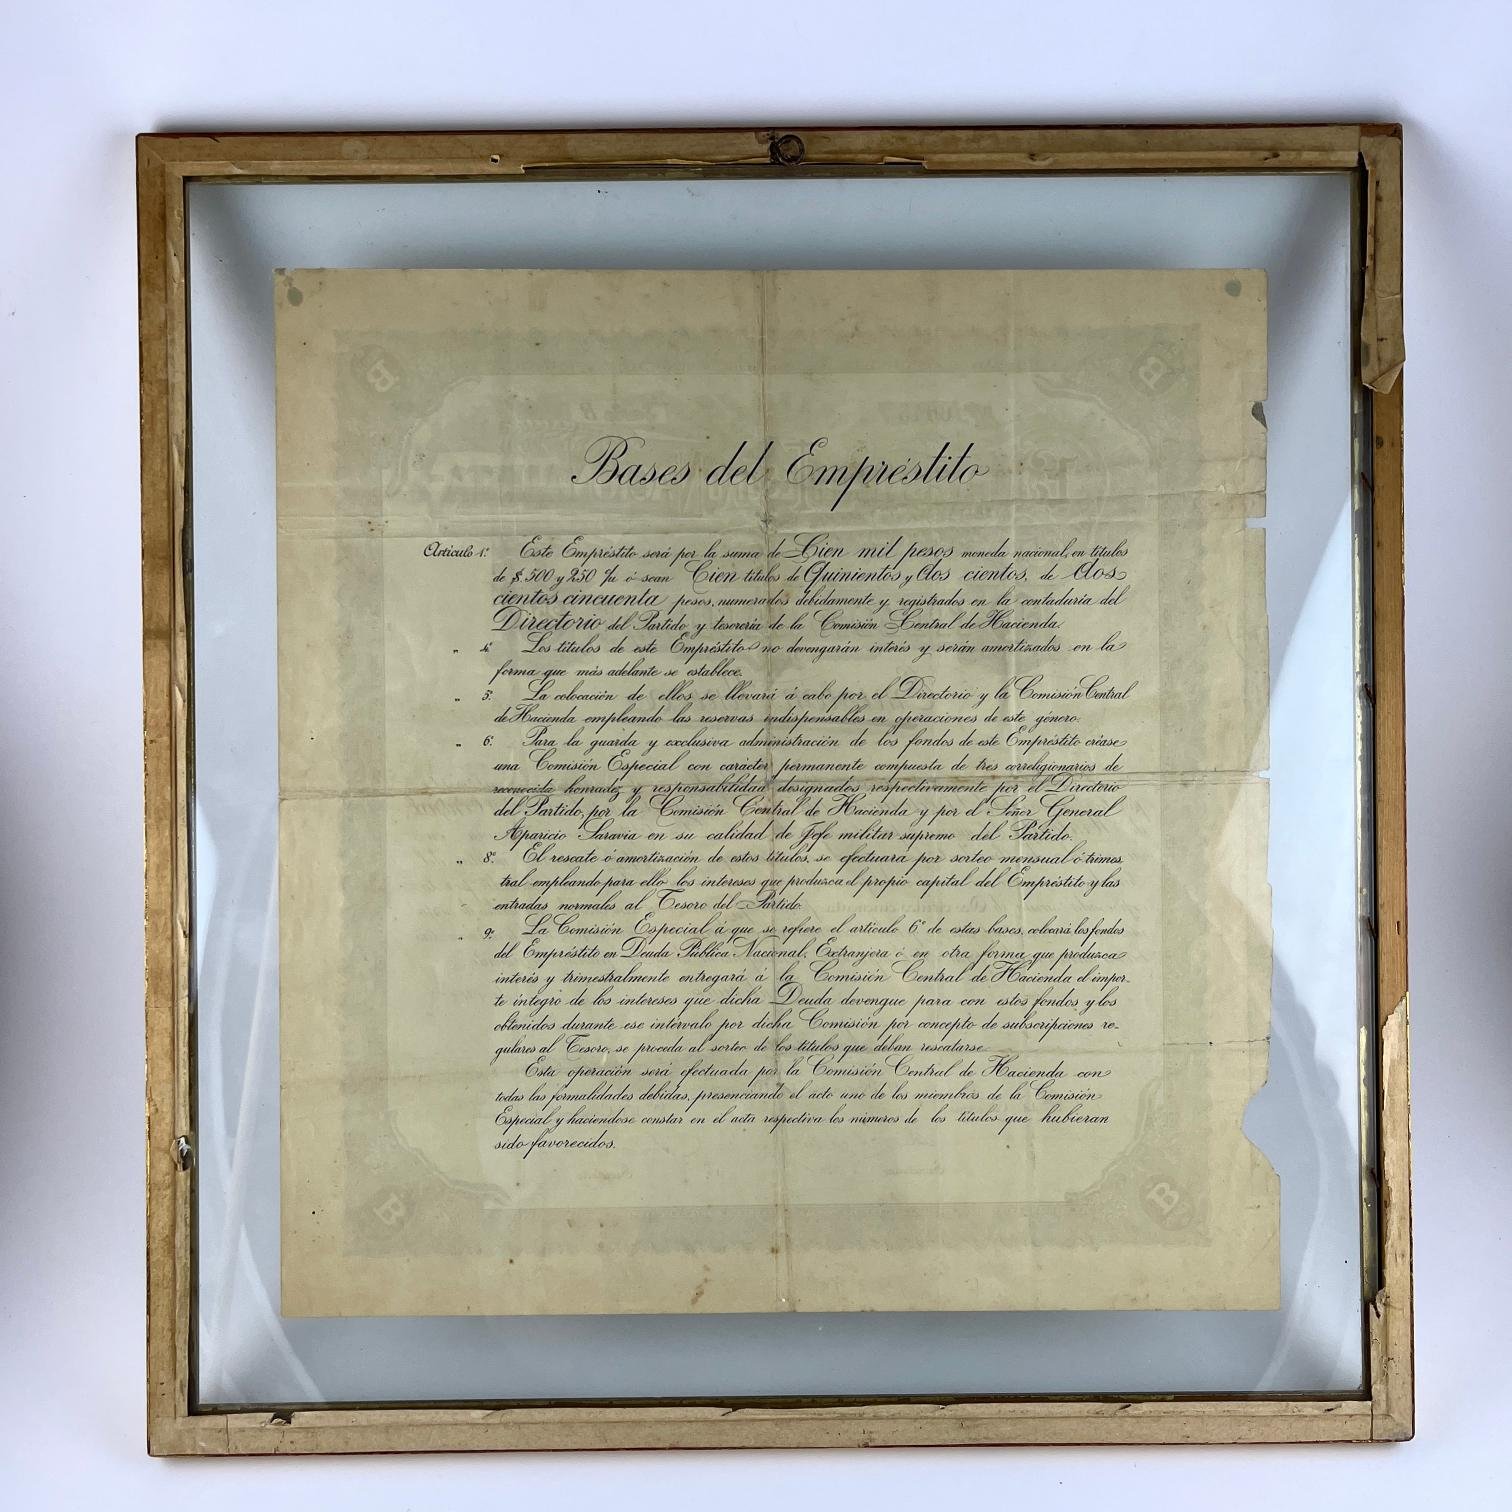 Bases del Empréstito
Artículo 1º Este Empréstito será por la suma de Cien mil pesos moneda nacional, en títulos
de $ 500 y 250 ó sean Cien títulos de Quinientos y dos cientos, de dos
cientos cincuenta pesos, numerados debidamente y registrados en la contaduría del
Directorio del Partido y tesorería de la Comisión Central de Hacienda.
„ 4º Los títulos de este Empréstito no devengarán interés y serán amortizados en la
forma que más adelante se establece.
„ 5º La colocación de ellos se llevará á cabo por el Directorio y la Comisión Central
de Hacienda empleando las reservas indispensables en operaciones de este género.
„ 6º Para la guarda y exclusiva administración de los fondos de este Empréstito créase
una Comisión Especial con carácter permanente compuesta de tres correligionarios de
reconocida honradez y responsabilidad designados respectivamente por el Directorio
del Partido, por la Comisión Central de Hacienda y por el Señor General
Aparicio Saravia en su calidad de Jefe militar supremo del Partido.
„ 8º El rescate ó amortización de estos títulos, se efectuará por sorteo mensual ó trimes
tral empleando para ello los intereses que produzca el propio capital del Empréstito y las
entradas normales al Tesoro del Partido.
„ 9º La Comisión Especial á que se refiere el artículo 6º de estas bases, colocará los fondos
del Empréstito en Deuda Pública Nacional, Extranjera ó en otra forma que produzca
interés y trimestralmente entregará á la Comisión Central de Hacienda el impor-
te íntegro de los intereses que dicha Deuda devengue para con estos fondos y los
obtenidos durante ese intérvalo por dicha Comisión por concepto de subscripciones re-
gulares al Tesoro, se proceda al sorteo de los títulos que deban rescatarse.
Esta operación será efectuada por la Comisión Central de Hacienda con
todas las formalidades debidas, presenciando el acto uno de los miembros de la Comisión
Especial y haciendose constar en el acta respectiva los números de los títulos que hubieran
sido favorecidos.